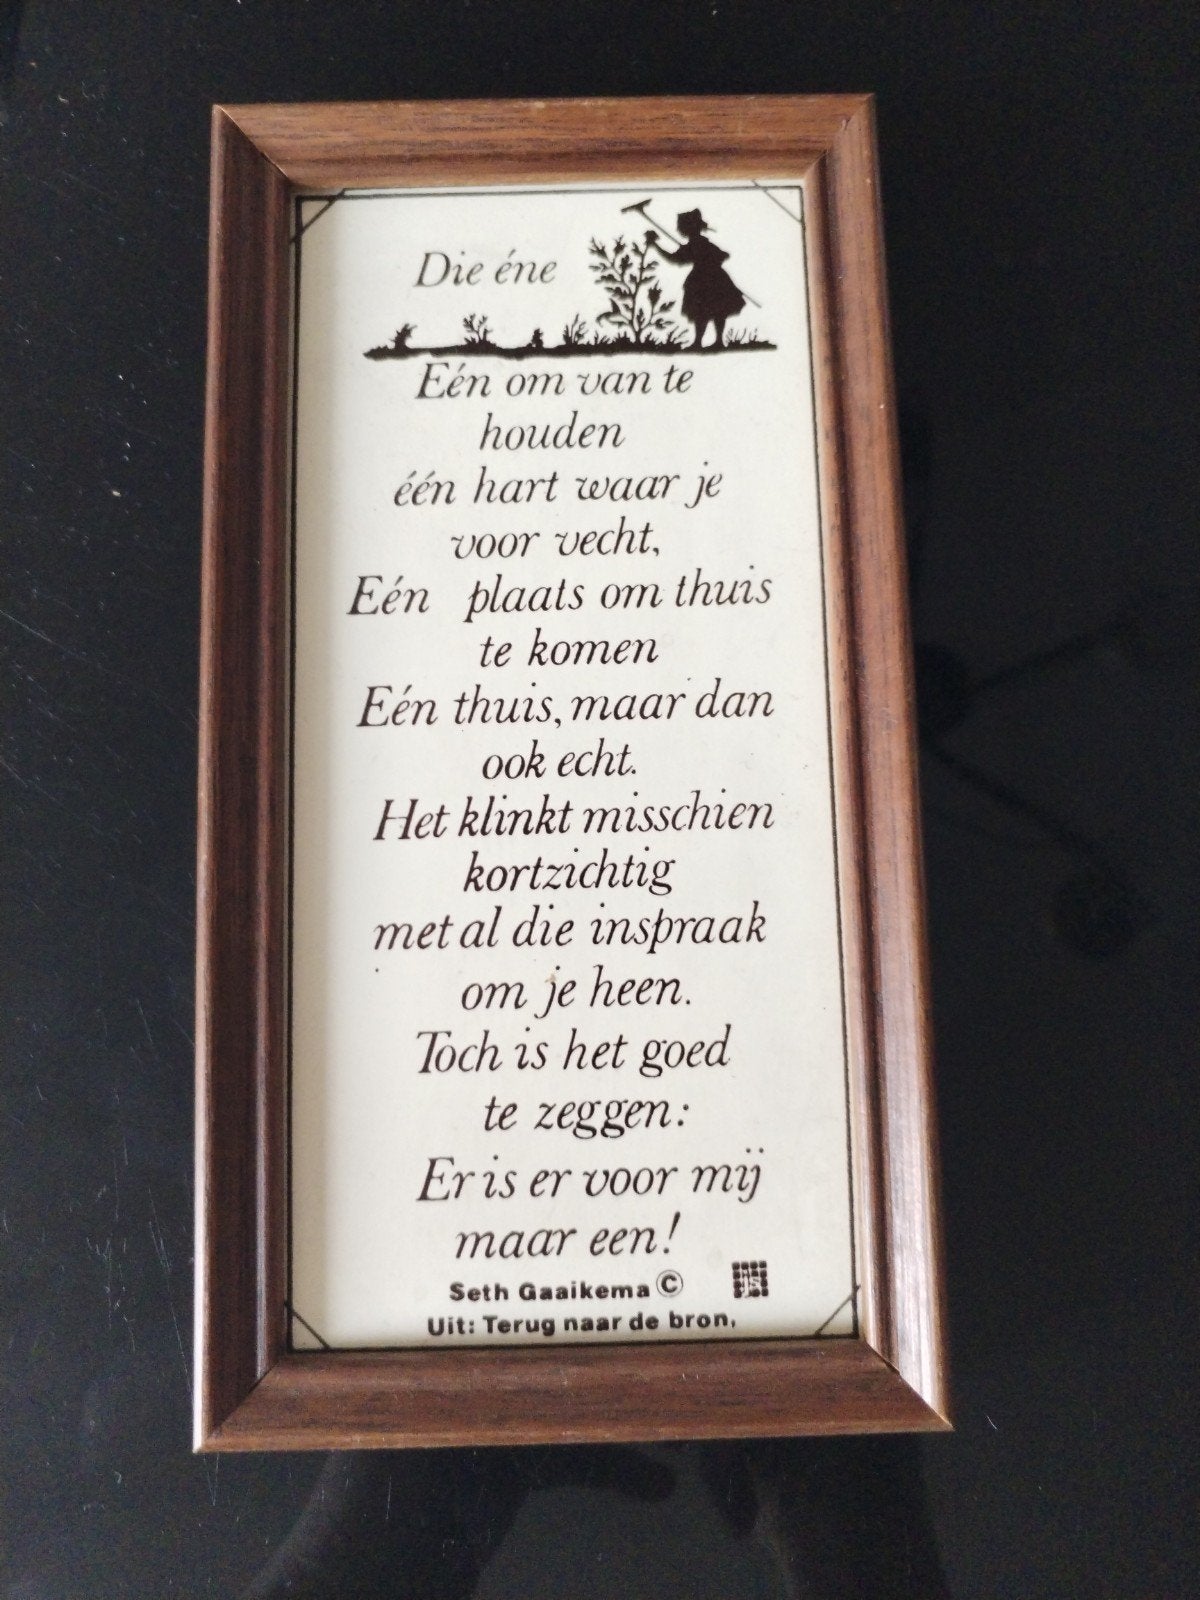 Die éne
Eén om van te
houden
één hart waar je
voor vecht,
Eén plaats om thuis
te komen
Eén thuis, maar dan
ook echt.
Het klinkt misschien
kortzichtig
met al die inspraak
om je heen.
Toch is het goed
te zeggen:
Er is er voor mij
maar een!
Seth Gaaikema ©
Uit: Terug naar de bron.